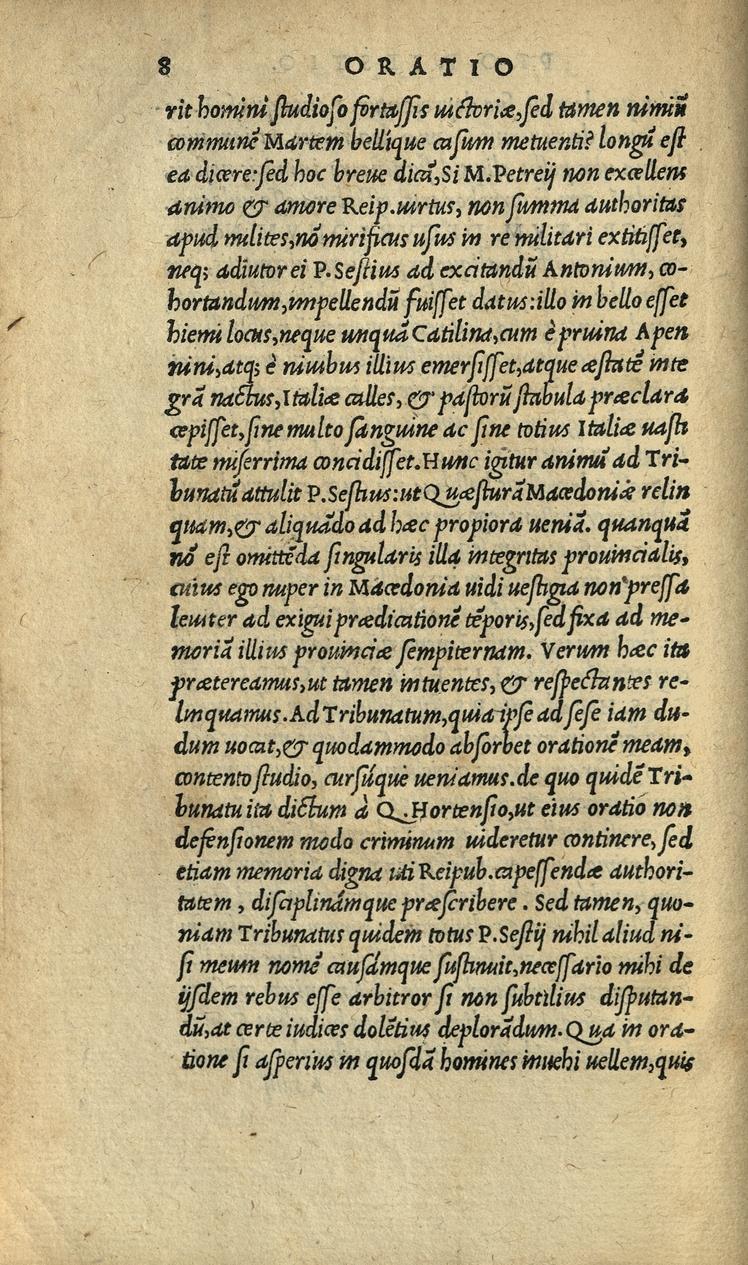 8 ORATIO
rit homini ſtudioſo fortaſſis uictoriæ, ſed tamen nimiū
communē Martem bellíque caſum metuenti? longū eſt
ea dicere: ſed hoc breue dicā, Si M. Petreij non excellens
animo & amore Reip. uirtus, non ſumma authoritas
apud milites, nō mirificus uſus in re militari extitiſſet,
neq; adiutor ei P. Seſtius ad excitandū Antonium, co-
hortandum, impellendū fuiſſet datus: illo in bello eſſet
hiemi locus, neque unquā Catilina, cum è pruina Apen
nini, atq; è niuibus illius emerſiſſet, atque æſtatē inte
grā nactus, Italiæ calles, & paſtorū ſtabula præclara
cepiſſet, ſine multo ſanguine ac ſine totius Italiæ uaſti
tate miſerrima concidiſſet. Hunc igitur animū ad Tri-
bunatū attulit P. Seſtius: ut Quæſturā Macedoniæ relin
quam, & aliquādo ad hæc propiora ueniā. quanquā
nō eſt omittēda ſingularis illa integritas prouincialis,
cuius ego nuper in Macedonia uidi ueſtigia non preſſa
leuiter ad exigui prædicationē tēporis, ſed fixa ad me-
moriā illius prouinciæ ſempiternam. Verum hæc ita
prætereamus, ut tamen intuentes, & reſpectantes re-
linquamus. Ad Tribunatum, quia ipſe ad ſeſe iam du-
dum uocat, & quodammodo abſorbet orationē meam,
contento ſtudio, curſúque ueniamus. de quo quidē Tri-
bunatu ita dictum à Q. Hortenſio, ut eius oratio non
defenſionem modo criminum uideretur continere, ſed
etiam memoria digna uti Reipub. capeſſendæ authori-
tatem, diſciplinámque præſcribere. Sed tamen, quo-
niam Tribunatus quidem totus P. Seſtij nihil aliud ni-
ſi meum nomē cauſámque ſuſtinuit, neceſſario mihi de
ijſdem rebus eſſe arbitror ſi non ſubtilius diſputan-
dū, at certe iudices dolētius deplorādum. Qua in ora-
tione ſi aſperius in quoſdā homines inuehi uellem, quis